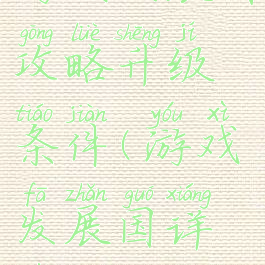 gōng lüè shēng jí
攻略升级
tiáo jiàn yóu xì
条件(游戏
fā zhǎn guó xiáng
发展国详